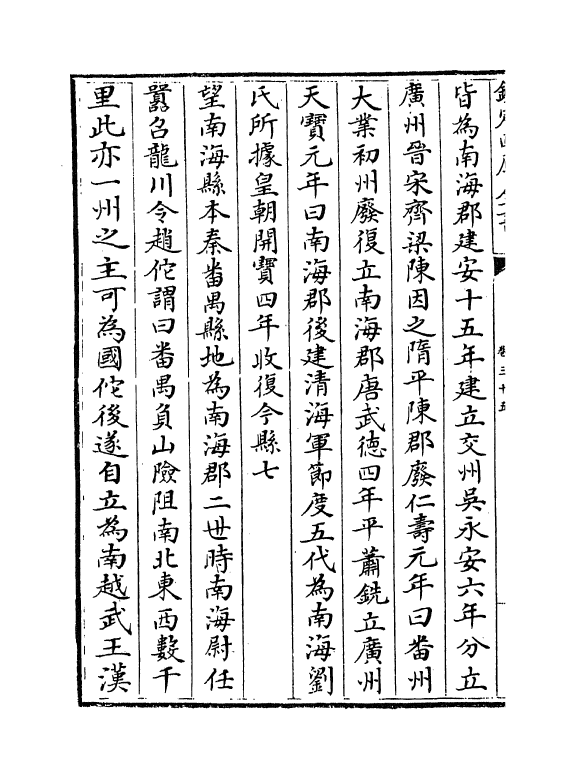 皆為南海郡建安十五年建立交州吳永安六年分立
廣州晉宋齊梁陳因之隋平陳郡廢仁壽元年曰番州
大業初州廢復立南海郡唐武徳四年平蕭銑立廣州
天寶元年曰南海郡後建清海軍節度五代為南海劉
氏所據皇朝開寶四年收復今縣七
望南海縣本秦番禺縣地為南海郡二世時南海尉任
囂召龍川令趙佗謂曰番禺負山險阻南北東西數千
里此亦一州之主可為國佗後遂自立為南越武王漢
卷三十五